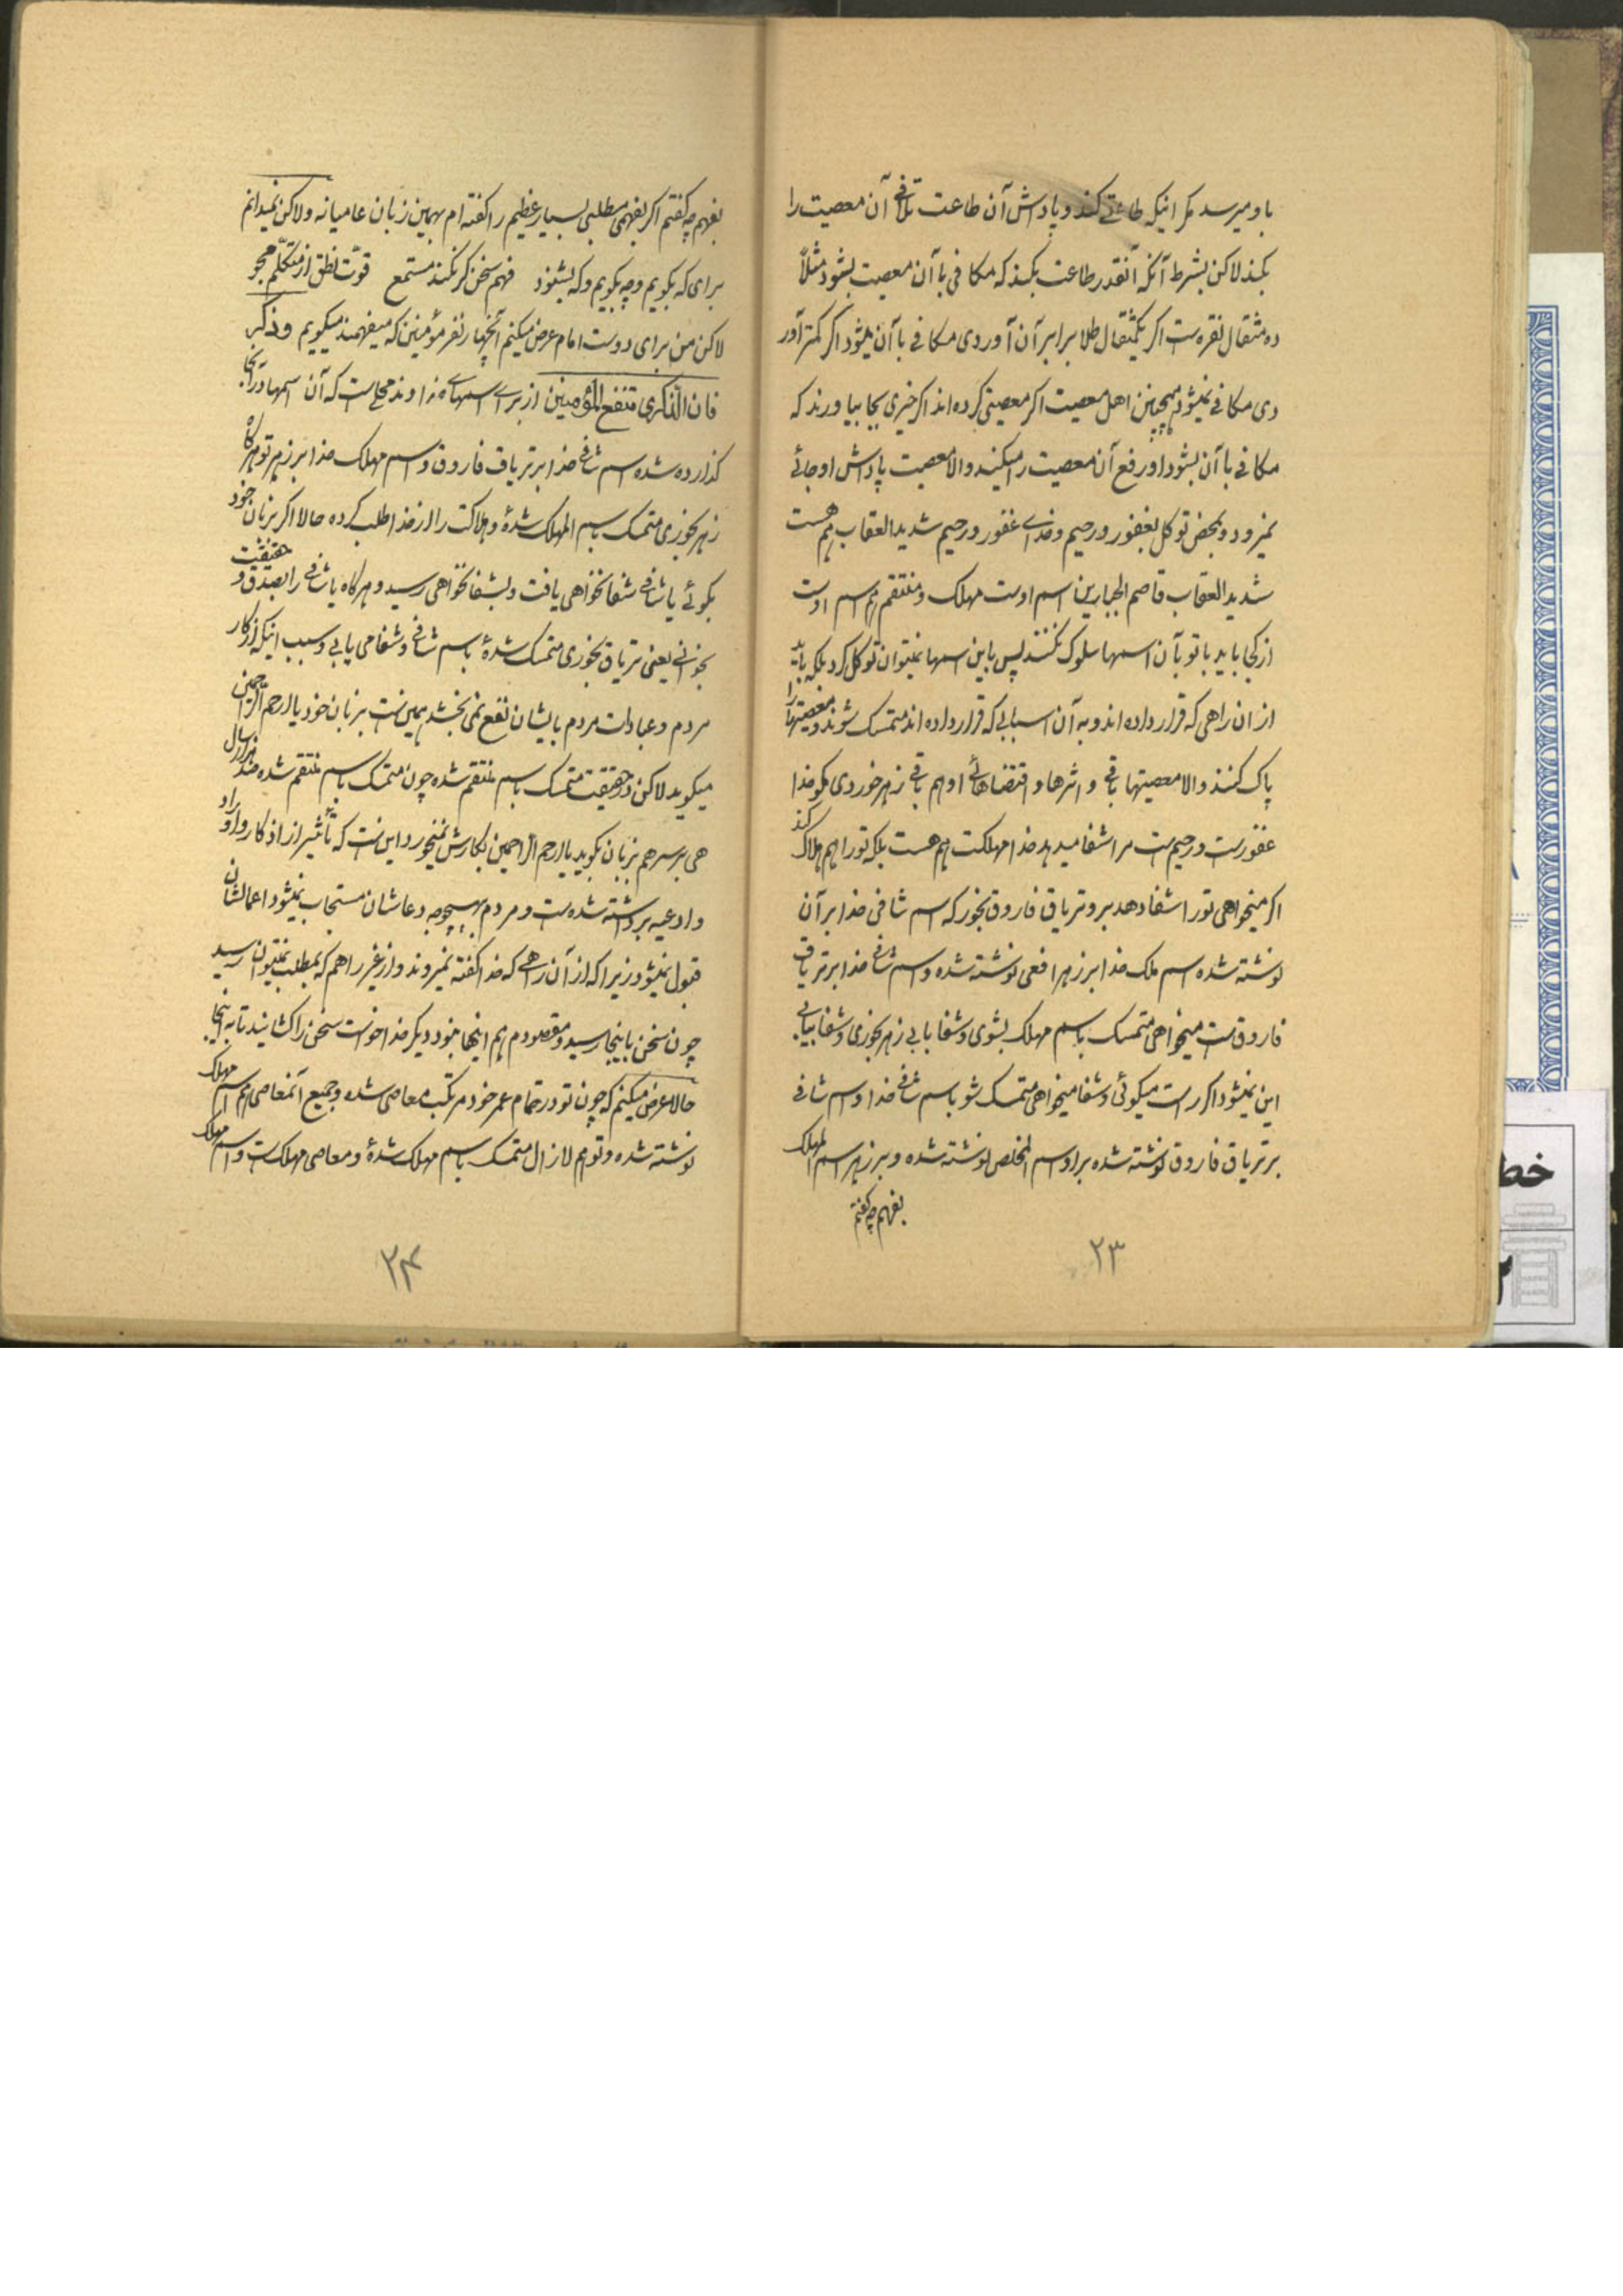 باو میرسد مگر اینکه طاعتی کند و پاداش آن طاعت تلافی آن معصیت را
بکند لاکن بشرط آنکه آنقدر طاعت بکند که مکافی با آن معصیت بشود مثلاً
ده مثقال نقره است اگر یکمثقال طلا برابر آن آوردی مکافی با آن میشود اگر کمتر آور
دی مکافی نمیشود همچنین اهل معصیت اگر معصیتی کرده اند اگر خیری بجا بیاورند که
مکافی با آن بشود او رفع آن معصیت را میکند والا معصیت پاداش او جائی
نمیرود و بمحض توکل بغفور و رحیم و خدای غفور و رحیم شدید العقاب هم هست
شدید العقاب قاصم الجبارین اسم اوست مهلک و منتقم هم اسم اوست
از کجا باید با تو بآن اسمها سلوک نکنند پس باین اسمها نمیتوان توکل کرد بلکه باید
از ان راهی که قرار داده اند و به آن اسبابی که قرار داده اند متمسک شوند و معصیتها را
پاک کنند والا معصیتها باقی و اثرها و اقتضاهای او هم باقی زهر خوردی مگو خدا
غفورست و رحیم ست مرا شفا میدهد خدا مهلکت هم هست بلکه تو را هم هلاک کند
اگر میخواهی تو را شفا دهد برو تریاق فاروق بخور که اسم شافی خدا بر آن
نوشته شده اسم ملک خدا بر زهر افعی نوشته شده و اسم شافی خدا بر تریاق
فاروق ست میخواهی متمسک باسم مهلک بشوی و شفا یابی زهر بخوری و شفا بیابی
این نمیشود اگر راست میگوئی و شفا میخواهی متمسک شو باسم شافی خدا و اسم شافی
بر تریاق فاروق نوشته شده بر او اسم المخلص نوشته شده و بر زهر اسم المهلک
بفهم چه گفتم
۲۳
بفهم چه گفتم اگر بفهمی مطلبی بسیار عظیم را گفته ام بهمین زبان عامیانه ولاکن نمیدانم
برای که بگویم و چه بگویم و که بشنود فهم سخن گر نکند مستمع قوّت نطق از متکلّم مجو
لاکن من برای دوست امام عرض میکنم آنچهار نفر مؤمنین که میفهمند میگوییم و ذکّر
فان الذکری تنفع المؤمنین از برای اسمهای خداوند محلی است که آن اسمها در آنجا
گذارده شده اسم شافی خدا بر تریاق فاروق و اسم مهلک خدا بر زهر تو هرگاه
زهر بخوری متمسک باسم المهلک شدهٔ و هلاکت را از خدا طلب کرده حالا اگر بزبان خود
بگوئی یا شافی شفا نخواهی یافت و بشفا نخواهی رسید و هرگاه یا شافی را بصدق و حقیقت
بخوانی یعنی تریاق بخوری متمسک شدهٔ باسم شافی و شفا می یابی و سبب اینکه اذکار
مردم و عبادات مردم بایشان نفع نمی بخشد همین ست بزبان خود یا ارحم الراحمین
میگوید لاکن در حقیقت متمسک باسم منتقم شده چون متمسک باسم منتقم شده صد هزار سال
هی بر سر هم بزبان بگوید یا ارحم الراحمین بکارش نمیخورد این ست که تأثیر از اذکار و اوراد
و ادعیه برداشته شده ست و مردم بهیچوجه دعاشان مستجاب نمیشود اعمالشان
قبول نمیشود زیرا که از آن راهی که خدا گفته نمیروند و از غیر راهم که بمطلب نمیتوان رسید
چون سخن باینجا رسید و مقصودم هم اینها نبود دیگر خدا خواست سخن را کشانید تا به اینجا
حالا عرض میکنم که چون تو در تمام عمر خود مرتکب معاصی شده و جمیع آنمعاصی هم اسم مهلک
نوشته شده و تو هم لازال متمسک باسم مهلک شدهٔ و معاصی مهلکست و اسم مهلک
۲۴